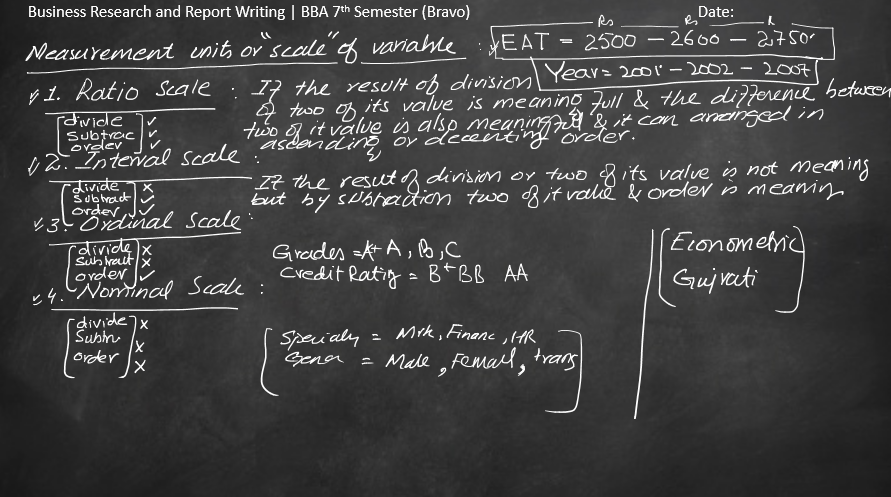 Business Research and Report Writing | BBA 7th Semester (Bravo)
Date:
Rs Rs R
Measurement units or "scale" of variable :
EAT = 2500 – 2600 – 2750
Year = 2001 – 2002 – 2007
1. Ratio Scale :
If the result of division
of two of its value is meaning full & the difference between
two of it value is also meaning full & it can arranged in
ascending or decenting order.
divide ✓
Subtrac ✓
order ✓
2. Interval scale :
If the result of division or two of its value is not meaning
but by subtraction two of it value & order is meanin
divide x
Subtract ✓
order ✓
3. Ordinal Scale :
divide x
Subtract x
order ✓
Grades = A+ A, B, C
Credit Ratig = B+ BB AA
4. Nominal Scale :
divide x
Subtn x
order x
Specialy = Mrk, Financ, HR
= Male, Femall, trans
Econometric
Gujrati